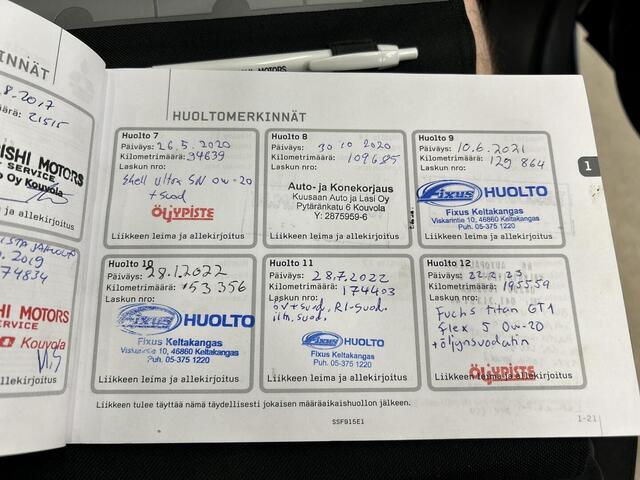 KINNÄT
.8.2017
äärä: 21515
ISHI MOTORS
SERVICE
o Oy Kouvola
allekirjoitus
.2019
74834
HI MOTORS
SERVICE
Kouvola
allekirjoitus
MOTORS
HUOLTOMERKINNÄT
Huolto 7
Päiväys: 26.5.2020
Kilometrimäärä: 94639
Laskun nro:
Shell ultra SN 0w-20
+ suod
ÖLJYPISTE
Liikkeen leima ja allekirjoitus
Huolto 8
Päiväys: 30 10 2020
Kilometrimäärä: 109685
Laskun nro:
Auto- ja Konekorjaus
Kuusaan Auto ja Lasi Oy
Pytäränkatu 6 Kouvola
Y: 2875959-6
Liikkeen leima ja allekirjoitus
Huolto 9
Päiväys: 10.6.2021
Kilometrimäärä: 129 864
Laskun nro:
Fixus HUOLTO
Fixus Keltakangas
Viskarintie 10, 46860 Keltakangas
Puh. 05-375 1220
Liikkeen leima ja allekirjoitus
1
Huolto 10
Päiväys: 28.1.2022
Kilometrimäärä: 153 356
Laskun nro:
Fixus HUOLTO
Fixus Keltakangas
Viskarintie 10, 46860 Keltakangas
Puh. 05-375 1220
Liikkeen leima ja allekirjoitus
Huolto 11
Päiväys: 28.7.2022
Kilometrimäärä: 174403
Laskun nro:
öv+suod, RI-suod.
ilm.suod.
Fixus HUOLTO
Fixus Keltakangas
Puh. 05-375 1220
Liikkeen leima ja allekirjoitus
Huolto 12
Päiväys: 22.2.23
Kilometrimäärä: 195559
Laskun nro:
Fuchs titan GT1
flex 5 0w-20
+öljynsuodatin
ÖLJYPISTE
Liikkeen leima ja allekirjoitus
Liikkeen tulee täyttää nämä täydellisesti jokaisen määräaikaishuollon jälkeen.
SSF915E1
1-21